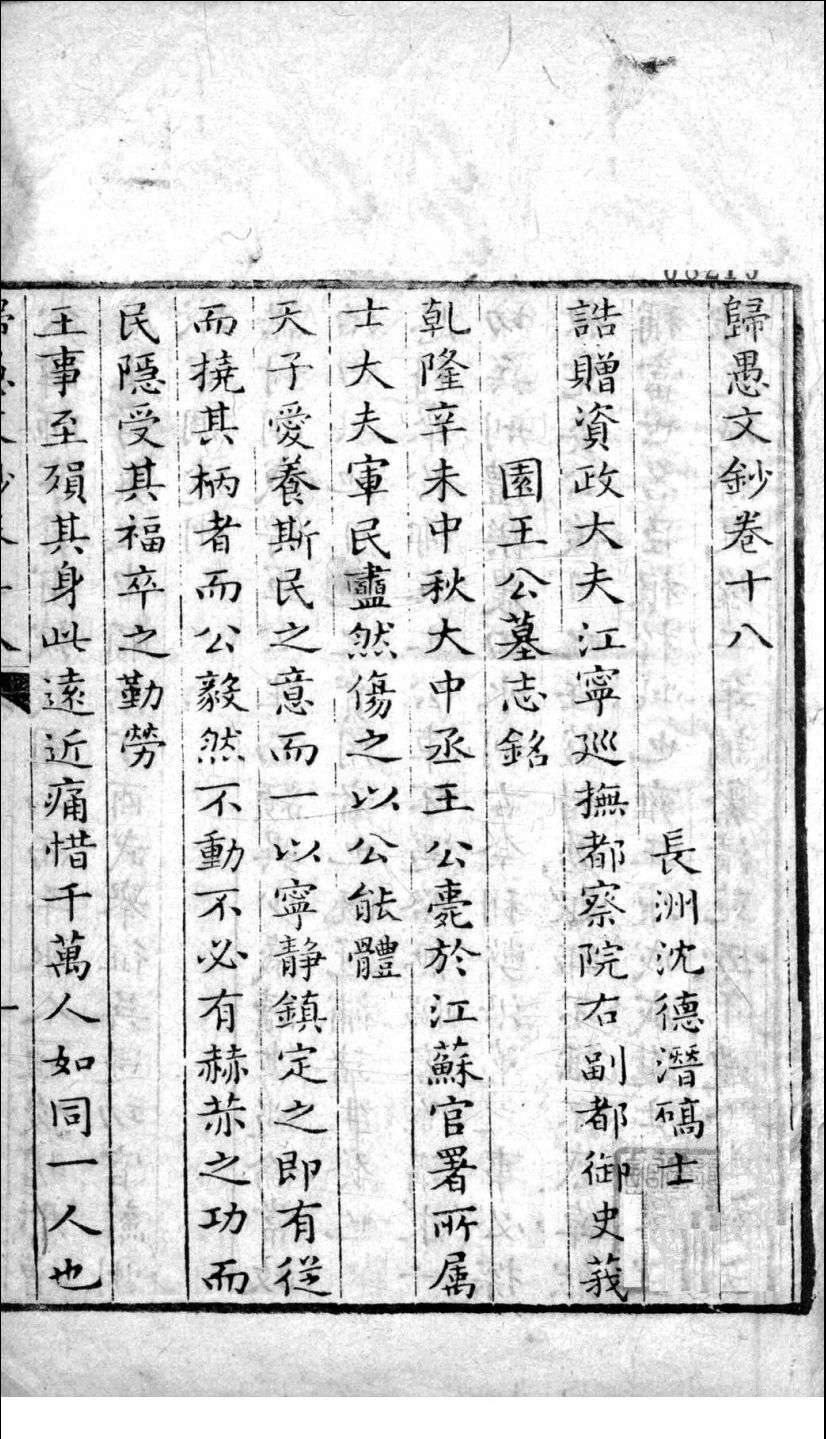 歸愚文鈔卷十八
長洲沈德潛碻士
誥贈資政大夫江寧廵撫都察院右副都御史莪
園王公墓志銘
乹隆辛未中秋大中丞王公薨於江蘇官署所属
士大夫軍民衋然傷之以公能體
天子愛養斯民之意而一以寧静鎮定之即有從
而撓其柄者而公毅然不動不必有赫赤之功而
民隠受其福卒之勤勞
王事至殞其身此遠近痛惜千萬人如同一人也